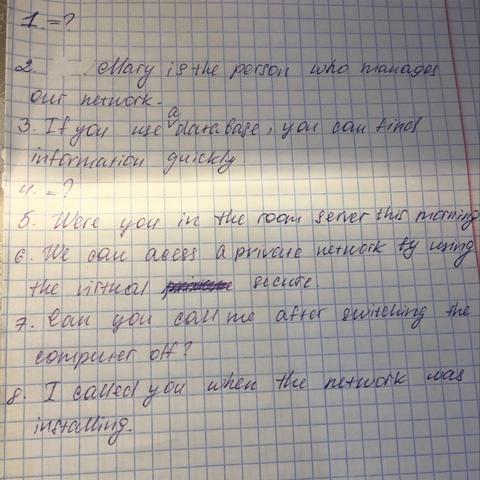 1. =?
2. Mary is the person who manages
our network.
3. If you use a database, you can find
information quickly
4. = ?
5. Were you in the room server this morning
6. We can acess a private network by using
the virtual secure.
7. Can you call me after switching the
computer off?
8. I called you when the network was
installing.